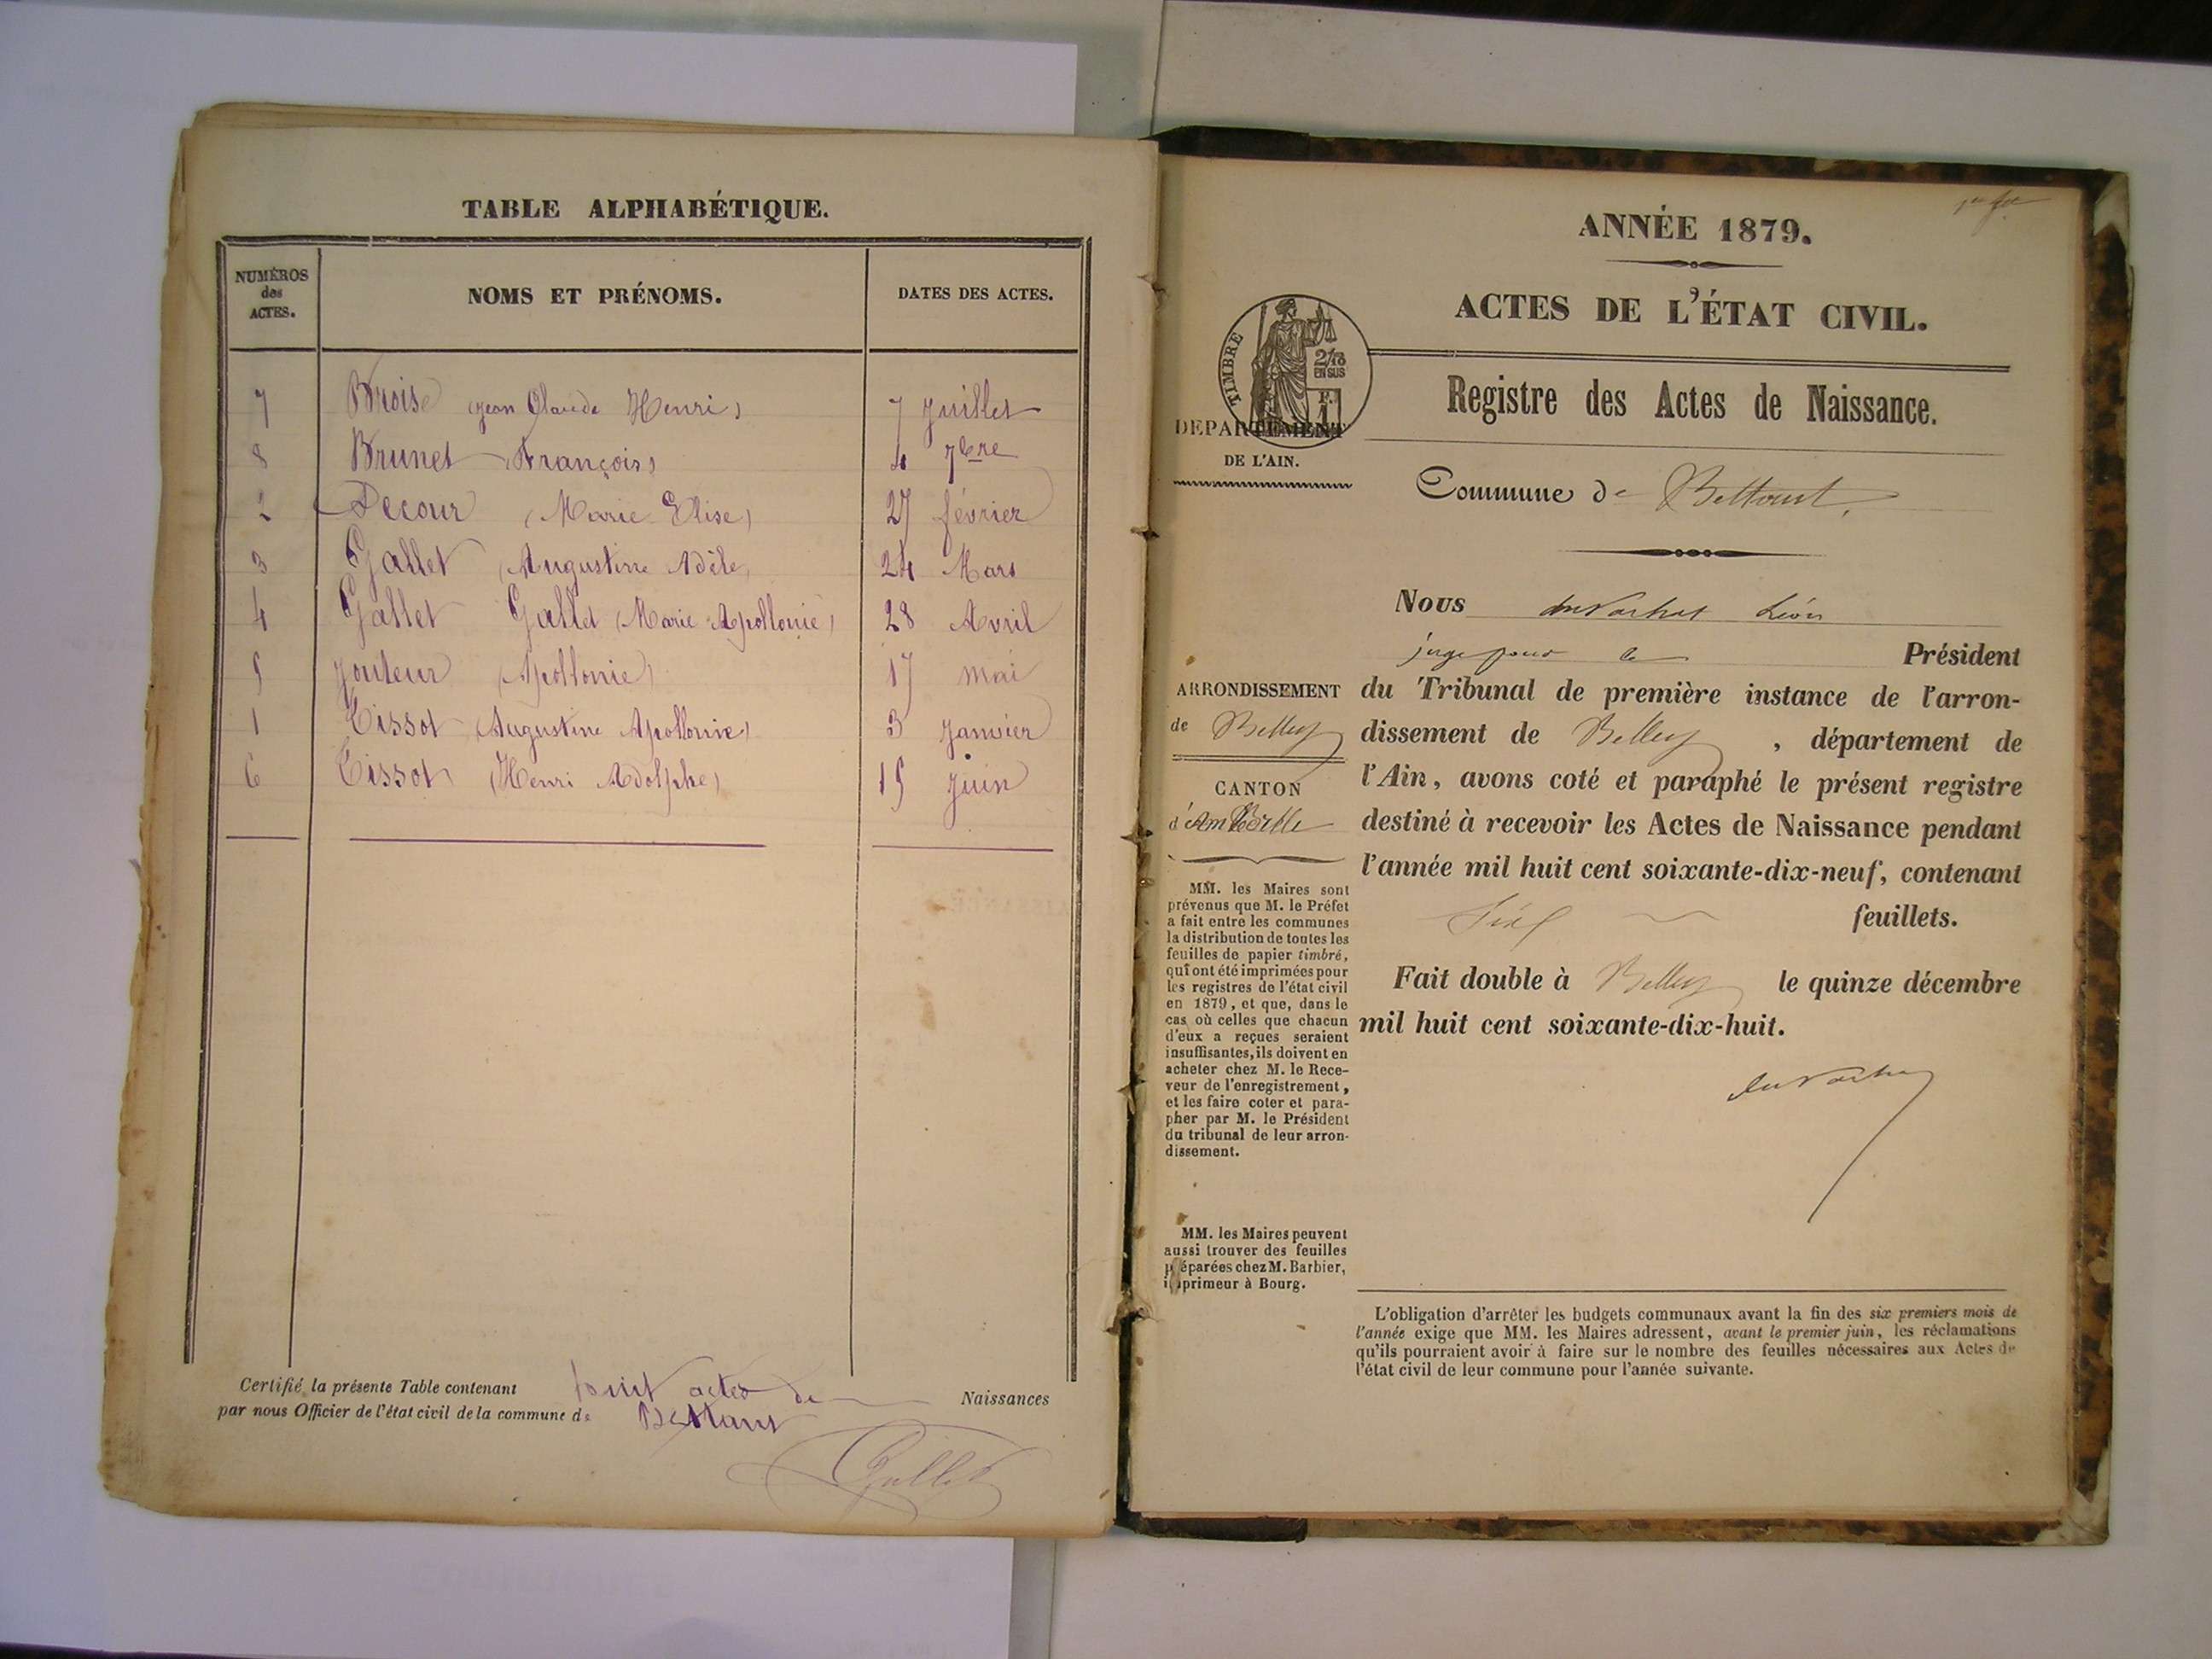 TABLE ALPHABÉTIQUE.
NUMÉROS
des
ACTES.
NOMS ET PRÉNOMS.
DATES DES ACTES.
7 Brois (Jean Claude Henri) 7 Juillet
8 Brunet (François) 4 7bre
2 Decour (Marie Elise) 27 février
3 Gallet (Augustine Adèle) 24 Mars
4 Gallet Gallet (Marie Apollonie) 28 Avril
5 Jouteur (Apollonie) 17 Mai
1 Tissot (Augustine Apollonie) 3 Janvier
6 Tissot (Henri Adolphe) 15 Juin
Certifié la présente Table contenant huit actes de Naissances
par nous Officier de l'état civil de la commune de Bettant
Gallet
ANNÉE 1879.
ACTES DE L'ÉTAT CIVIL.
TIMBRE
2/10
EN SUS
Registre des Actes de Naissance.
DEPARTEMENT
DE L'AIN.
Commune de Bettant.
Nous Léon
juge pour le Président
du Tribunal de première instance de l'arron-
dissement de Belley, département de
l'Ain, avons coté et paraphé le présent registre
destiné à recevoir les Actes de Naissance pendant
l'année mil huit cent soixante-dix-neuf, contenant
feuillets.
Fait double à Belley le quinze décembre
mil huit cent soixante-dix-huit.
ARRONDISSEMENT
de Belley
CANTON
MM. les Maires sont
prévenus que M. le Préfet
a fait entre les communes
la distribution de toutes les
feuilles de papier timbré,
qui ont été imprimées pour
les registres de l'état civil
en 1879, et que, dans le
cas où celles que chacun
d'eux a reçues seraient
insuffisantes, ils doivent en
acheter chez M. le Rece-
veur de l'enregistrement,
et les faire coter et para-
pher par M. le Président
du tribunal de leur arron-
dissement.
MM. les Maires peuvent
aussi trouver des feuilles
préparées chez M. Barbier,
imprimeur à Bourg.
L'obligation d'arrêter les budgets communaux avant la fin des six premiers mois de
l'année exige que MM. les Maires adressent, avant le premier juin, les réclamations
qu'ils pourraient avoir à faire sur le nombre des feuilles nécessaires aux Actes de
l'état civil de leur commune pour l'année suivante.